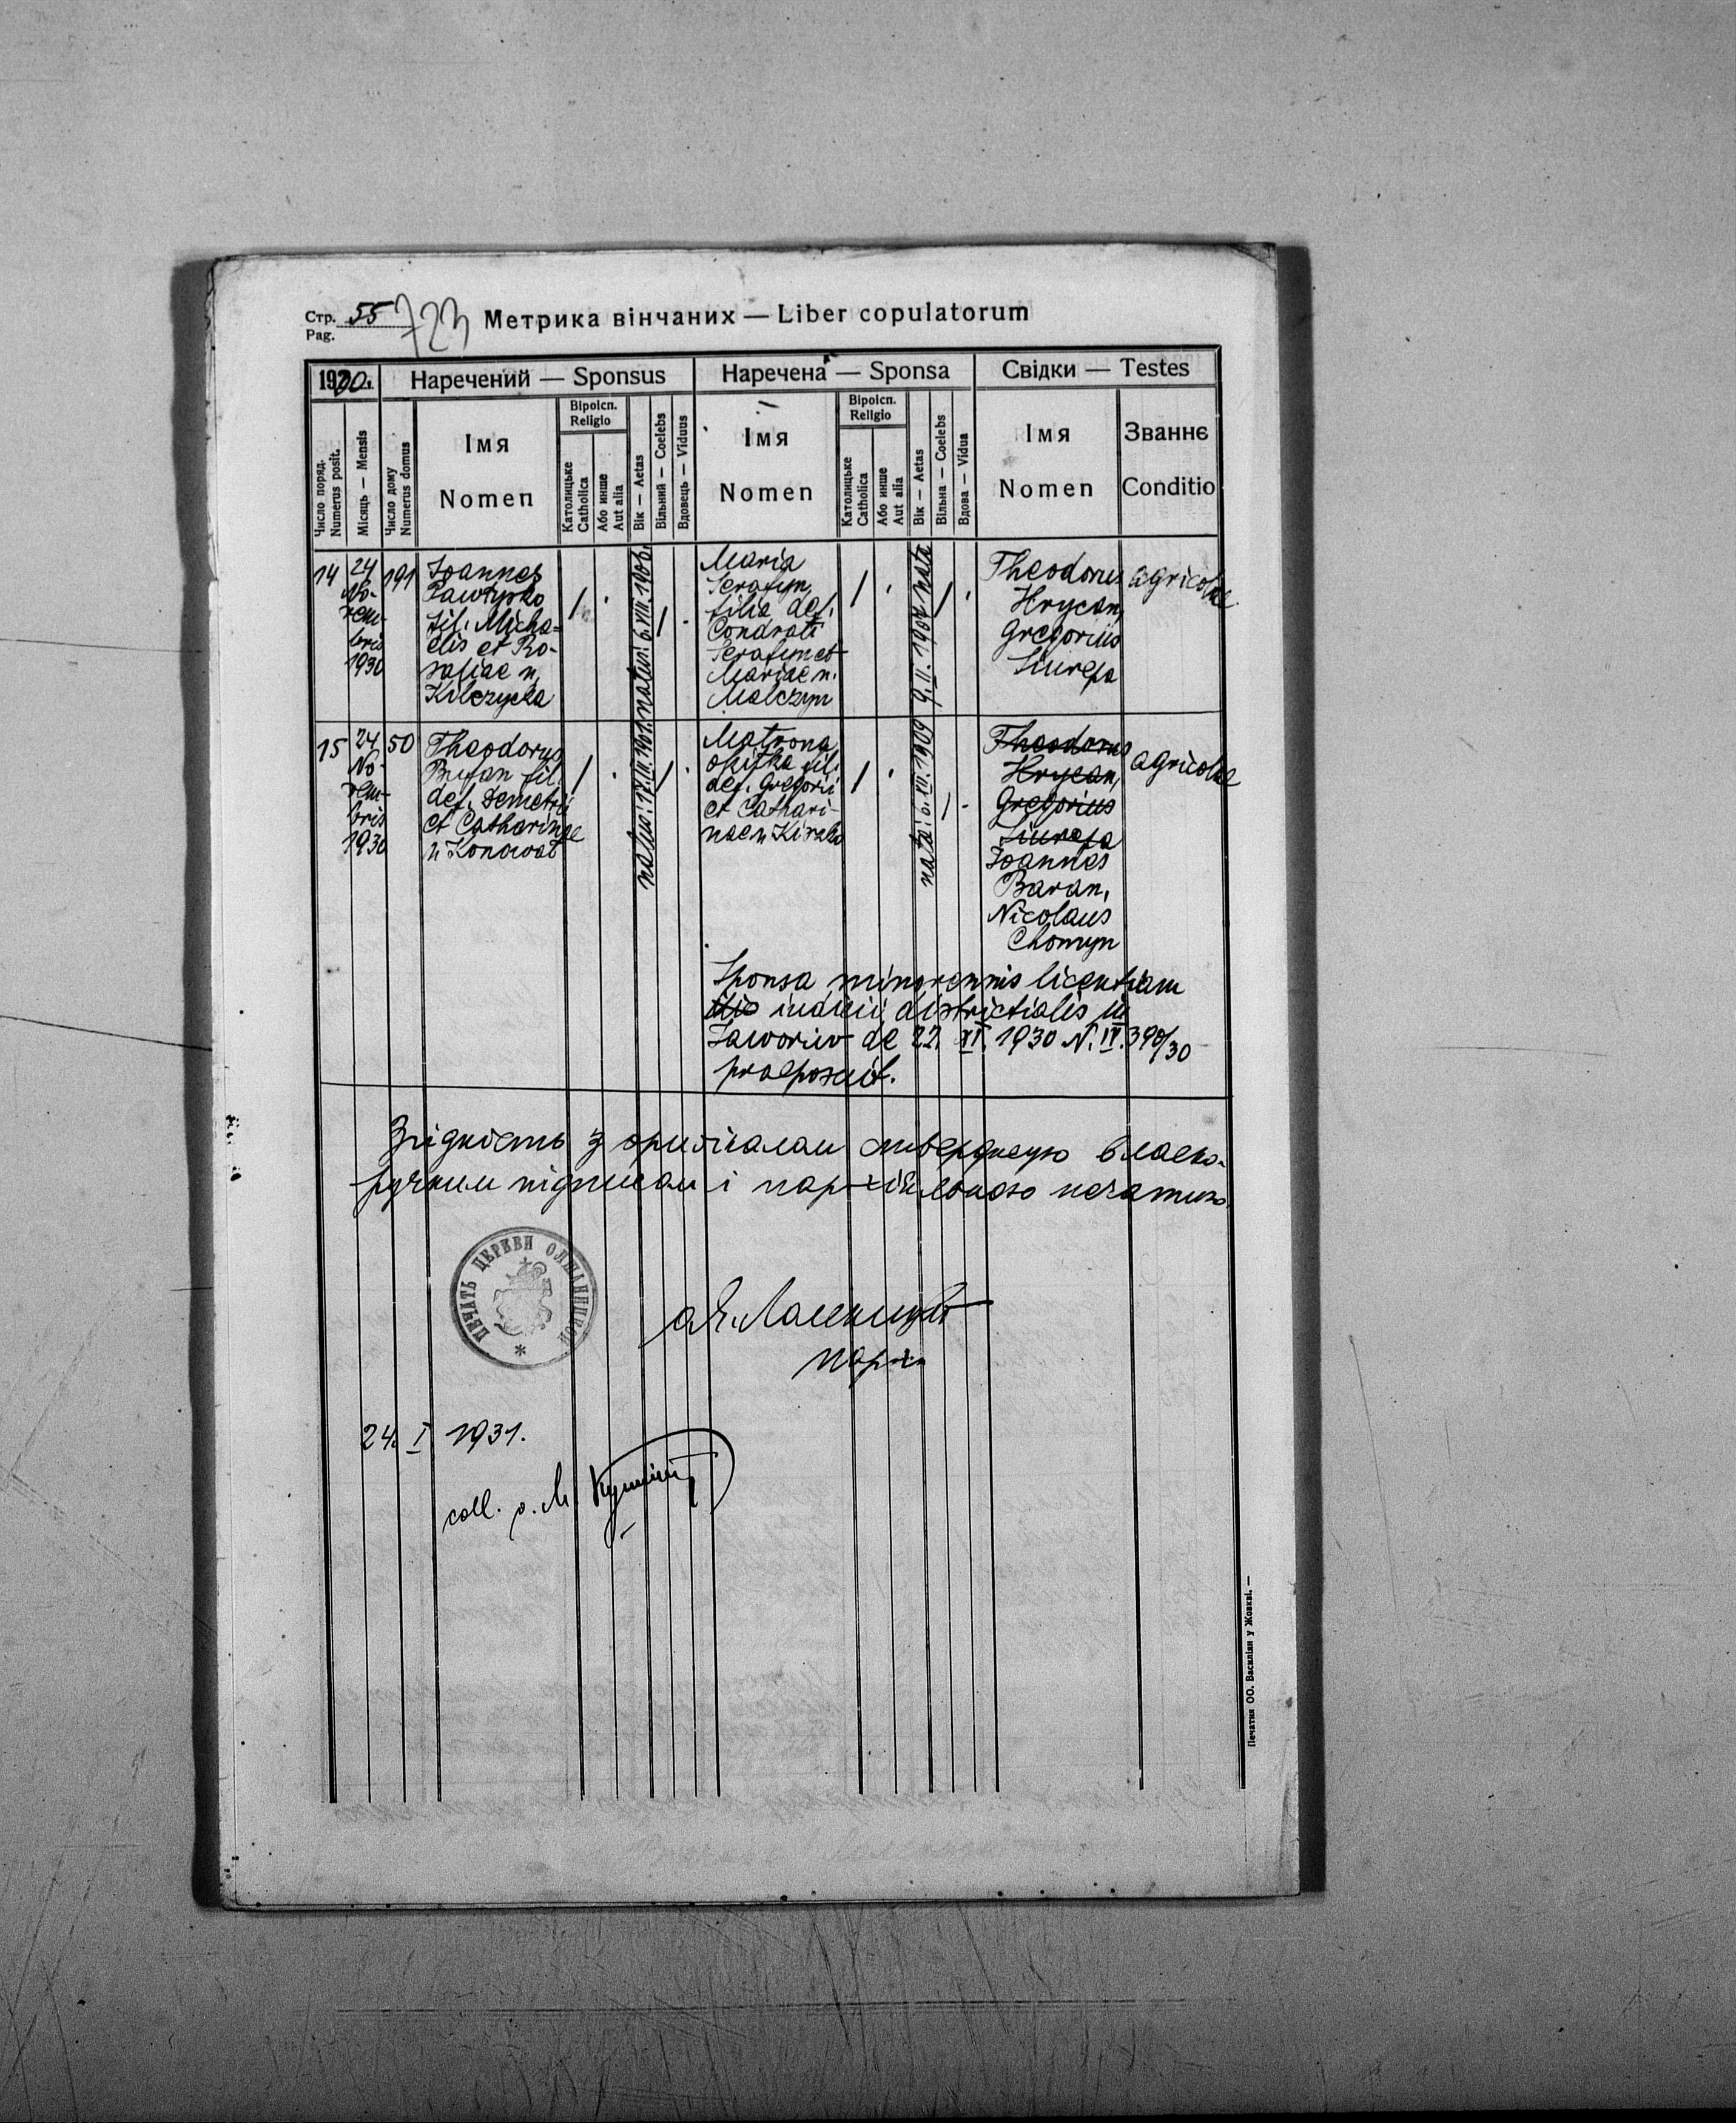 Стр. 55 723 Метрика вінчаних — Liber copulatorum
Pag.
1930. Наречений — Sponsus Наречена — Sponsa Свідки — Testes
Число поряд. Numerus posit.
Місяць — Mensis
Число дому Numerus domus
Імя Nomen
Віроісп. Religio
Католицьке Catholica
Або инше Aut alia
Вік — Aetas
Вільний — Coelebs
Вдовець — Viduus
Імя Nomen
Віроісп. Religio
Католицьке Catholica
Або инше Aut alia
Вік — Aetas
Вільна — Coelebs
Вдова — Vidua
Імя Nomen
Званнє Conditio
14
24
No-
vem-
bris
1930
191
Joannes
Pawłyszko
fil. Micha-
elis et Ro-
saliae n.
Kilczycka
natus: 6. VIII. 1906.
Maria
Serafym
filia def.
Condrati
Serafym et
Mariae n.
Malczyn
9. II. 1907 nata
Theodorus
Hrycan,
Gregorius
Siurepa
agricolae
15
24
No-
vem-
bris
1930
50
Theodorus
Bryfan fil.
def. Demetrii
et Catharinae
n Konowat
natus: 17. III. 1901.
Matrona
fil.
def. Gregorii
et Cathari-
nae n
nata: 6. VII. 1909
Theodorus
Hrycan,
Gregorius
Siurepa
Joannes
Baran,
Nicolaus
Chomyn
agricolae
Sponsa minorennis licentiam
iudicii districtialis in
Jaworiw de 22. XI. 1930 N. IV. 390/30
praeposuit.
Згідність з оригіналом стверджую власно-
ручним підписом і парохіяльною печаткою
ПЕЧАТЬ ЦЕРЕВИ ОЛШАНИЦКОЙ *
парох
24. I 1931.
coll. о. М.
Печатня ОО. Василіян у Жовкві. —